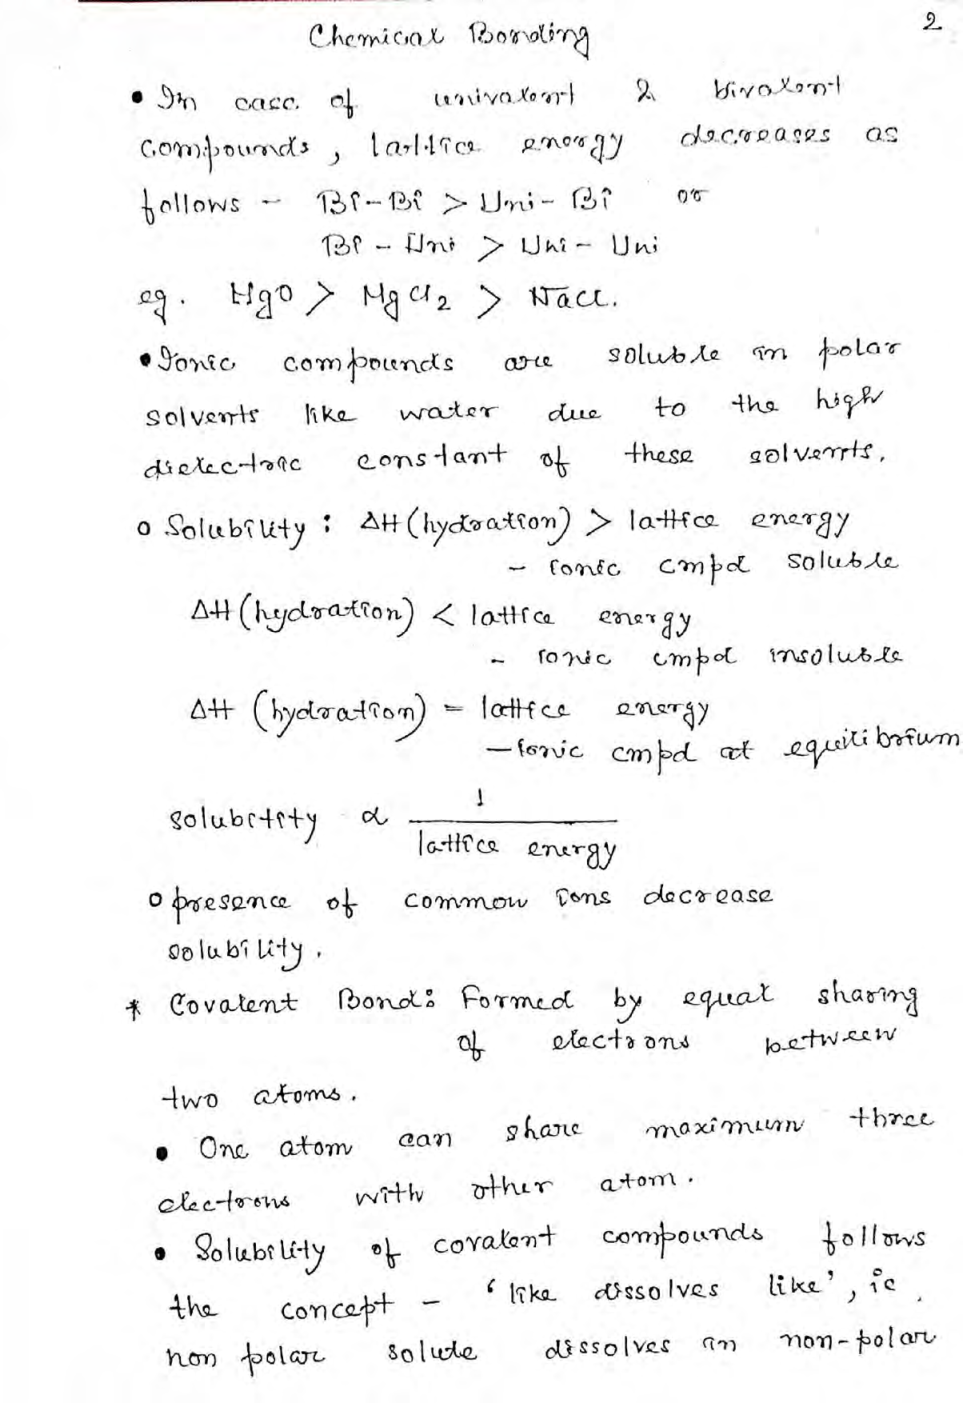 2
Chemical Bonding
• In case of univalent & bivalent
compounds, lattice energy decreases as
follows - Bi-Bi > Uni-Bi or
Bi - Uni > Uni - Uni
eg. MgO > MgCl₂ > NaCl.
• Ionic compounds are soluble in polar
solvents like water due to the high
dielectric constant of these solvents.
o Solubility : ΔH (hydration) > lattice energy
- ionic cmpd soluble
ΔH (hydration) < lattice energy
- ionic cmpd insoluble
ΔH (hydration) = lattice energy
- ionic cmpd at equilibrium
solubility α 1
lattice energy
o presence of common ions decrease
solubility.
* Covalent Bond: Formed by equal sharing
of electrons between
two atoms.
• One atom can share maximum three
electrons with other atom.
• Solubility of covalent compounds follows
the concept - 'like dissolves like', ie.
non polar solute dissolves in non-polar